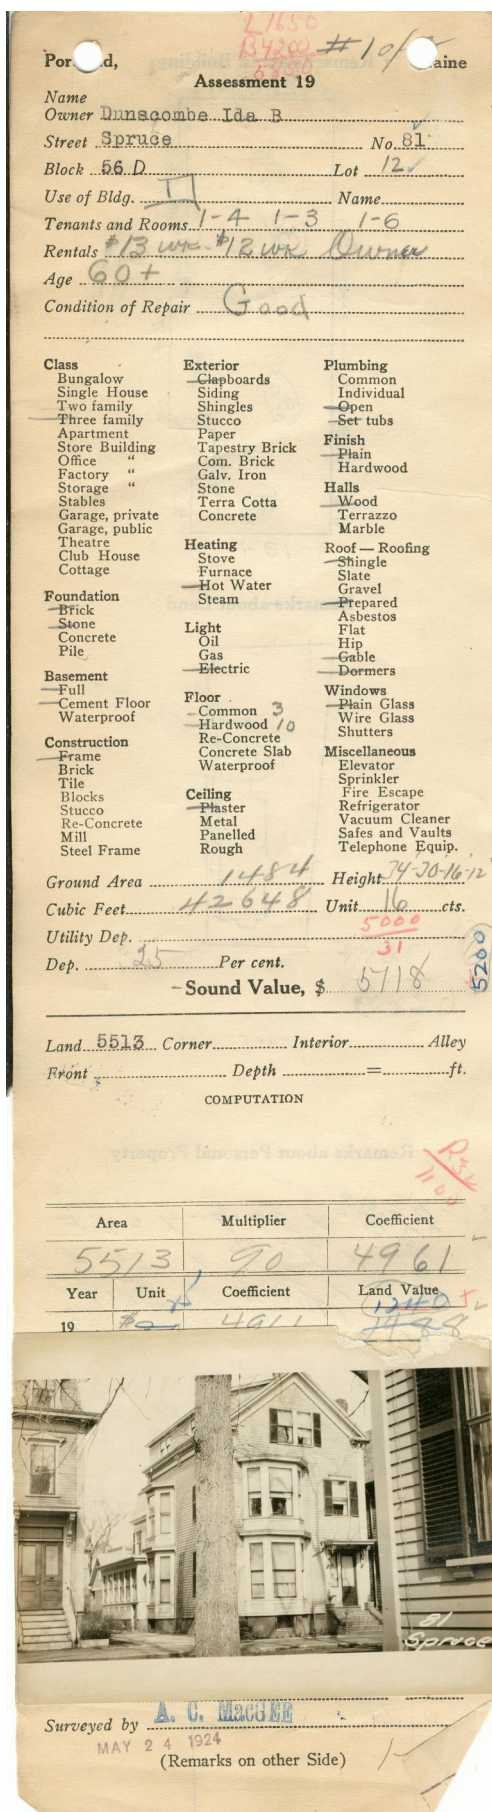 L 1650
B 4200
5850
# 10/
Portland, Maine
Assessment 19
Name
Owner Dunscombe Ida B
Street Spruce No. 81
Block 56 D Lot 12
Use of Bldg. T Name
Tenants and Rooms 1-4 1-3 1-6
Rentals $13 wk $12 wk Owner
Age 60+
Condition of Repair Good
Class
Bungalow
Single House
Two family
Three family
Apartment
Store Building
Office "
Factory "
Storage "
Stables
Garage, private
Garage, public
Theatre
Club House
Cottage
Foundation
Brick
Stone
Concrete
Pile
Basement
Full
Cement Floor
Waterproof
Construction
Frame
Brick
Tile
Blocks
Stucco
Re-Concrete
Mill
Steel Frame
Exterior
Clapboards
Siding
Shingles
Stucco
Paper
Tapestry Brick
Com. Brick
Galv. Iron
Stone
Terra Cotta
Concrete
Heating
Stove
Furnace
Hot Water
Steam
Light
Oil
Gas
Electric
Floor
Common 3
Hardwood 10
Re-Concrete
Concrete Slab
Waterproof
Ceiling
Plaster
Metal
Panelled
Rough
Plumbing
Common
Individual
Open
Set tubs
Finish
Plain
Hardwood
Halls
Wood
Terrazzo
Marble
Roof — Roofing
Shingle
Slate
Gravel
Prepared
Asbestos
Flat
Hip
Gable
Dormers
Windows
Plain Glass
Wire Glass
Shutters
Miscellaneous
Elevator
Sprinkler
Fire Escape
Refrigerator
Vacuum Cleaner
Safes and Vaults
Telephone Equip.
Ground Area 1484 Height 34-30-16-12
Cubic Feet 42648 Unit 16 cts.
Utility Dep. 5000
31
Dep. 25 Per cent.
Sound Value, $ 5118
5200
Land 5513 Corner Interior Alley
Front Depth = ft.
COMPUTATION
R32
1100
Area Multiplier Coefficient
5513 90 4961
Year Unit Coefficient Land Value
1240
19 $ 4911 1488
81
Spruce
Surveyed by A. C. MacGEE
MAY 24 1924
(Remarks on other Side)